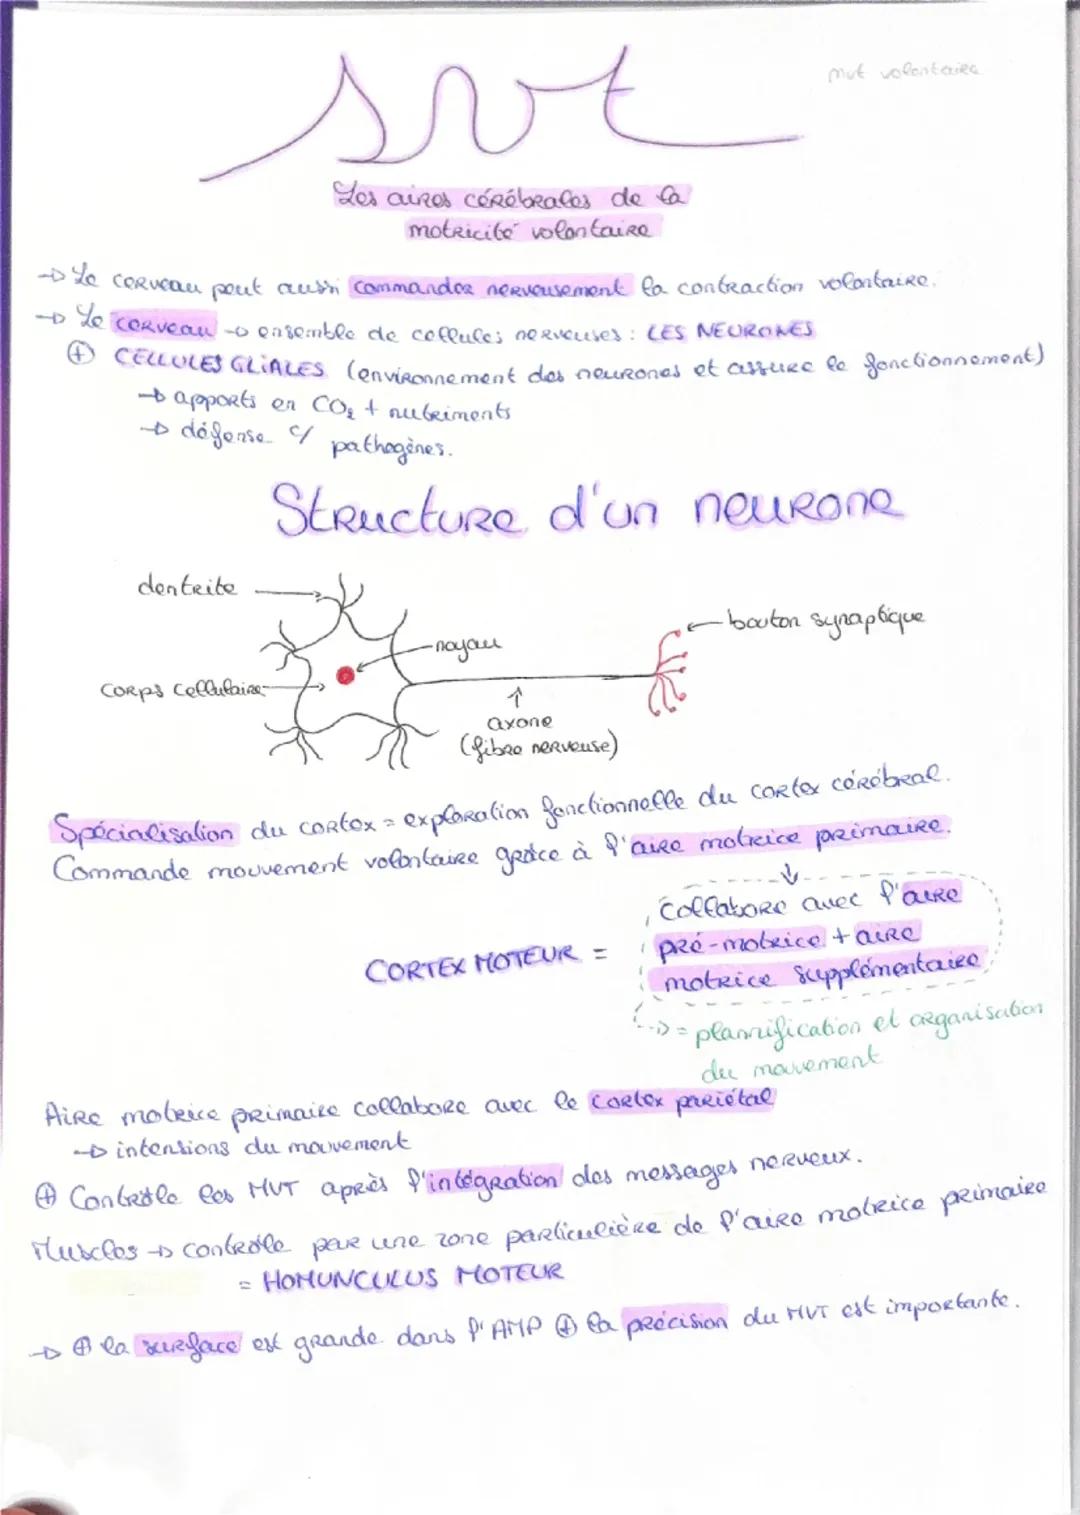 mvt volontaire
svt
Les aires cérébrales de la
motricité volontaire
→ Le cerveau peut aussi commander nerveusement la contraction volontaire.
→ Le cerveau → ensemble de cellules nerveuses : LES NEURONES
⊕ CELLULES GLIALES (environnement des neurones et assure le fonctionnement)
→ apports en CO₂ + nutriments
→ défense c/ pathogènes.
Structure d'un neurone
dentrite
bouton synaptique
noyau
corps cellulaire
axone
(fibre nerveuse)
Spécialisation du cortex = exploration fonctionnelle du cortex cérébral.
Commande mouvement volontaire grâce à l'aire motrice primaire.
Collabore avec l'aire
CORTEX MOTEUR = pré-motrice + aire
motrice supplémentaire
= plannification et organisation
du mouvement
Aire motrice primaire collabore avec le cortex pariétal
→ intensions du mouvement
⊕ Contrôle les MVT après l'intégration des messages nerveux.
Muscles → contrôle par une zone particulière de l'aire motrice primaire
= HOMUNCULUS MOTEUR
→ ⊕ la surface est grande dans l'AMP ⊕ la précision du MVT est importante.